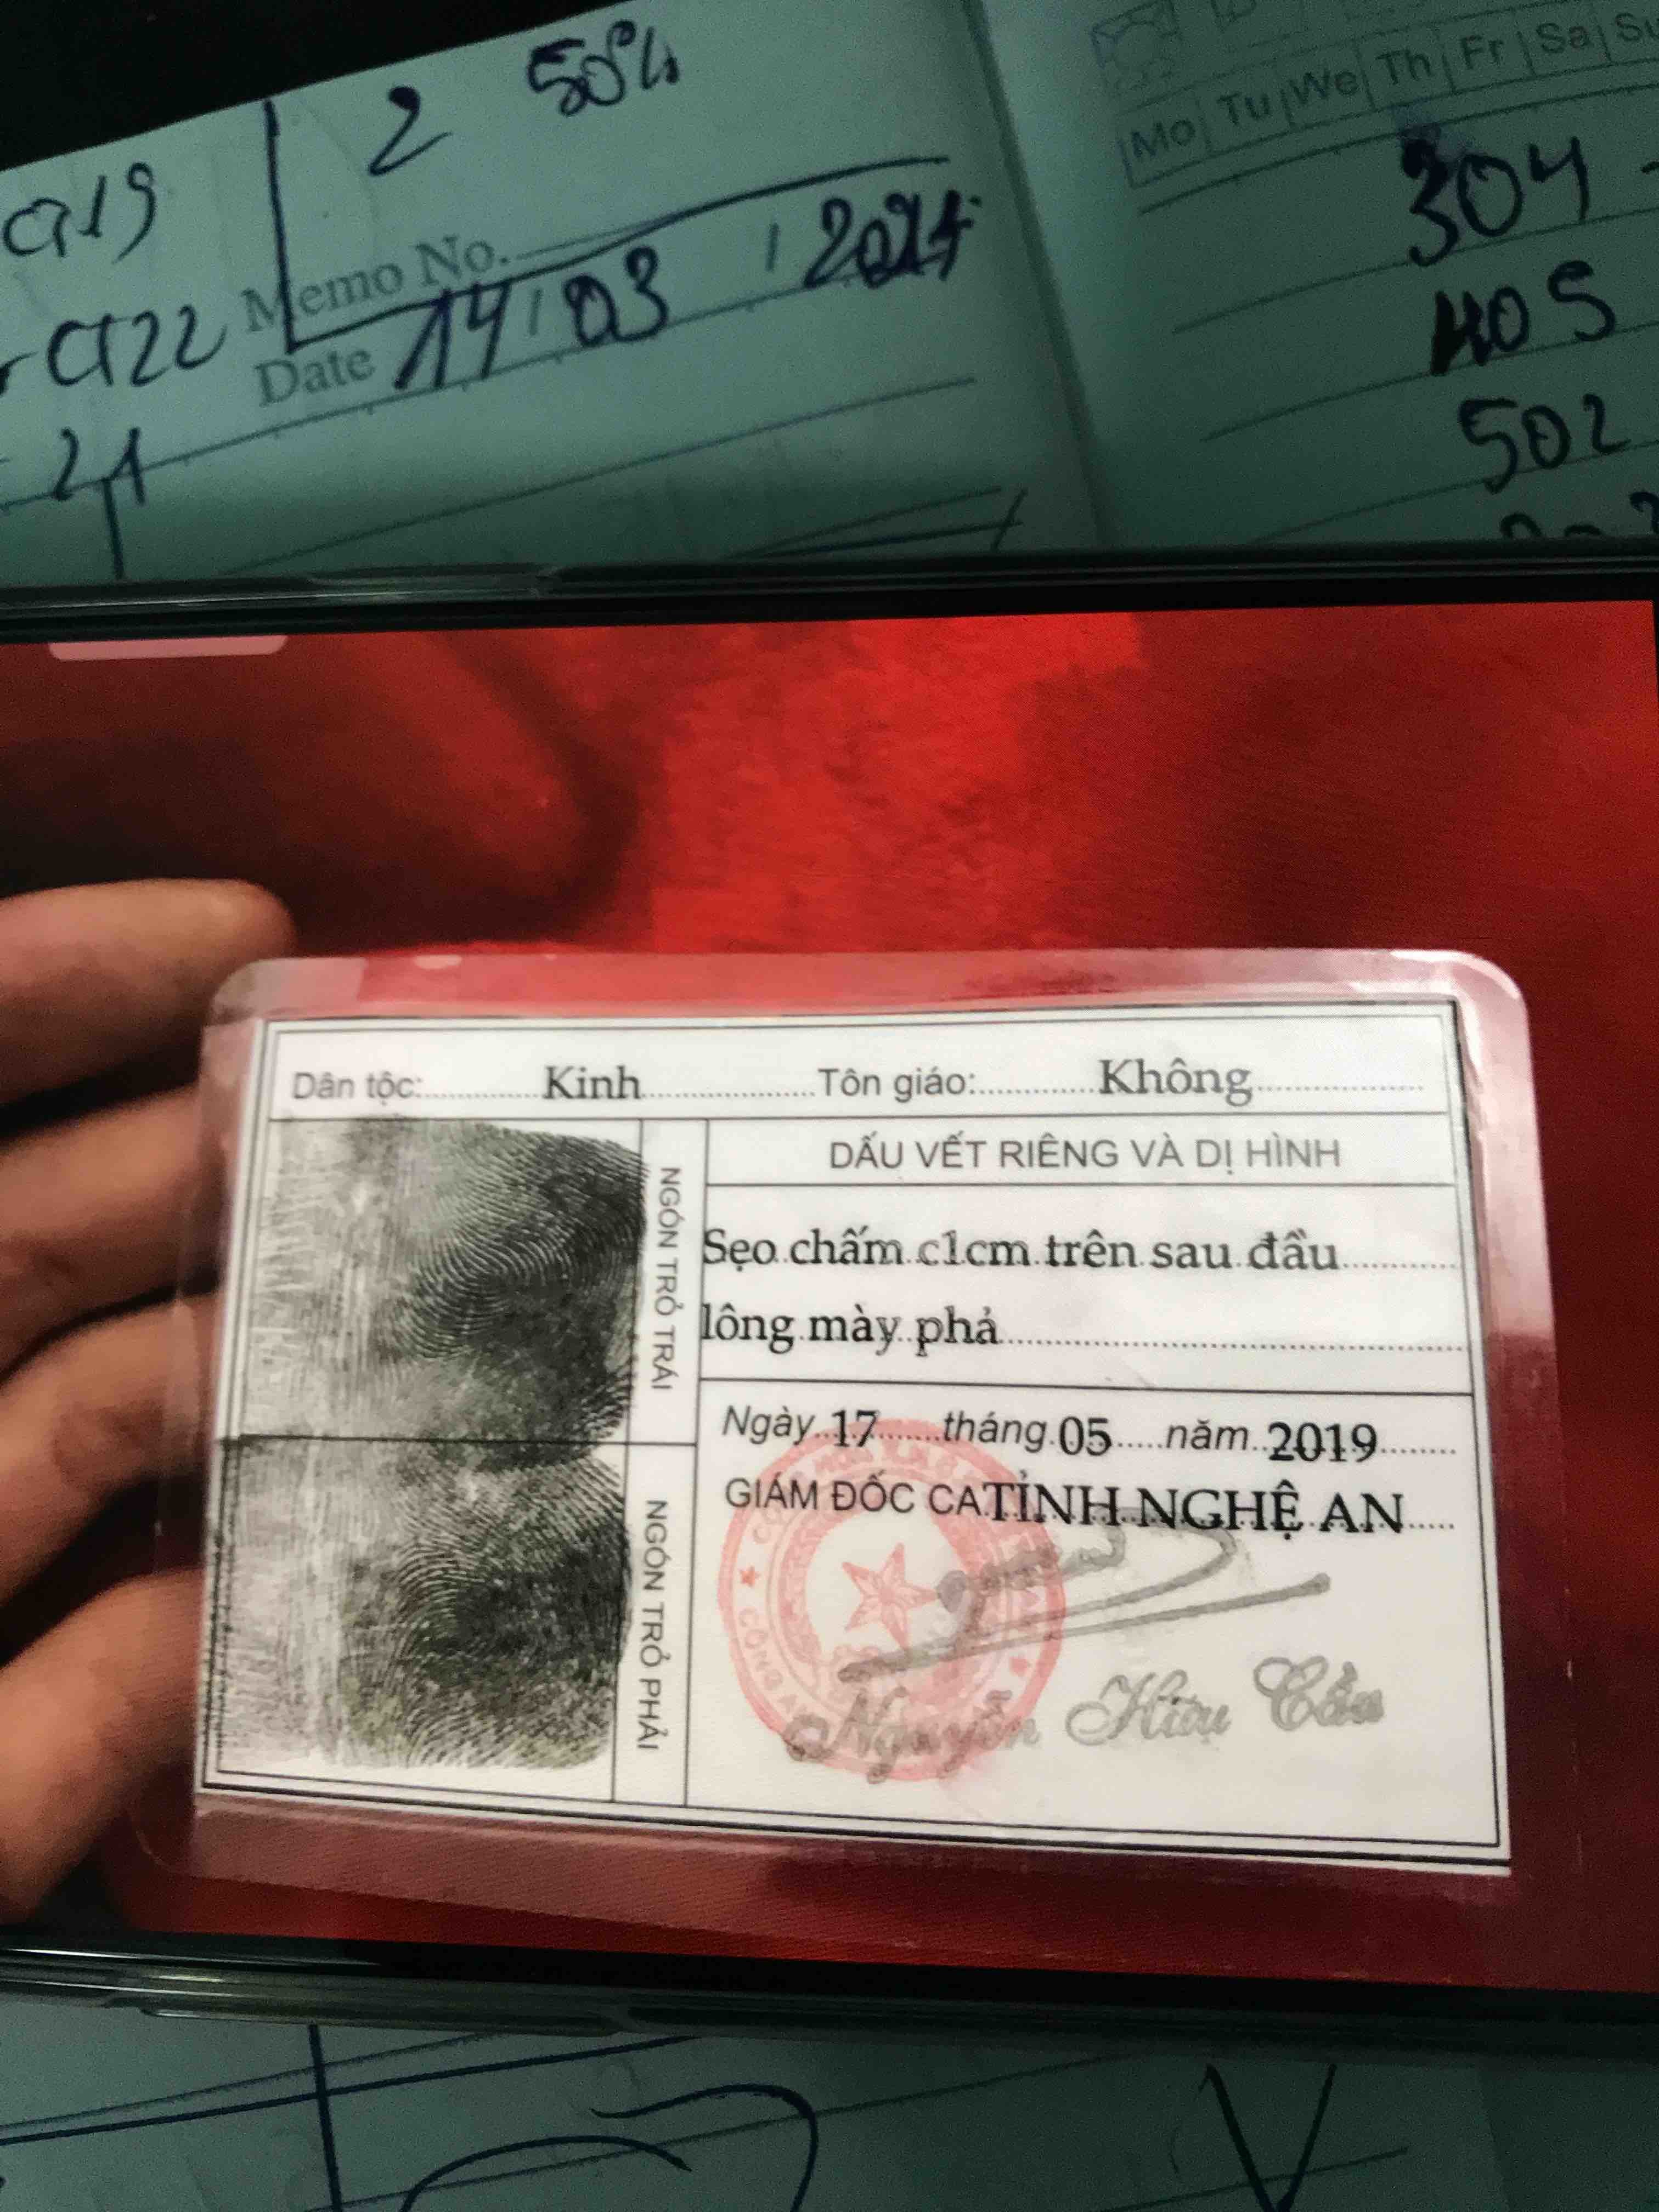 2 50%
a19
Memo No.
a22
Date 14 / 03 / 2024
21
Mo Tu We Th Fr Sa Su
304 -
405
502
Dân tộc: Kinh Tôn giáo: Không
NGÓN TRỎ TRÁI
NGÓN TRỎ PHẢI
DẤU VẾT RIÊNG VÀ DỊ HÌNH
Sẹo chấm c1cm trên sau đầu
lông mày phả
Ngày 17 tháng 05 năm 2019
GIÁM ĐỐC CA TỈNH NGHỆ AN
Nguyễn Hữu Cầu